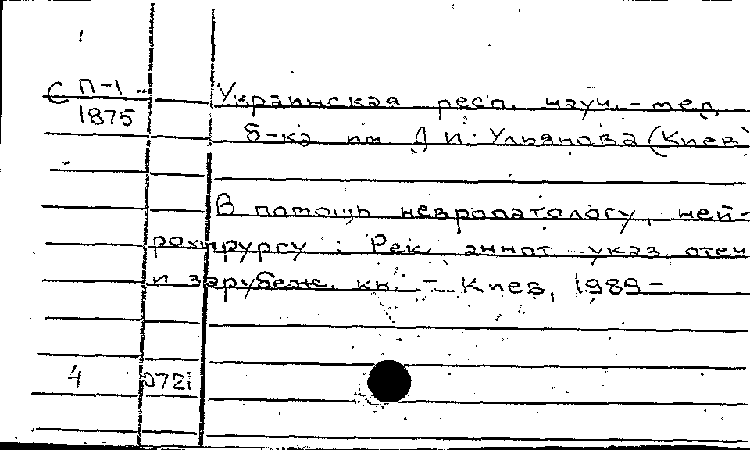 С П-1
1875
Украинская респ. науч.-мед.
б-ка им. Д И. Ульянова (Киев)
В помощь невропатологу, ней-
рохирургу : Рек. аннот. указ. отеч.
и зарубеж. кн. - Киев, 1989-
4 0721